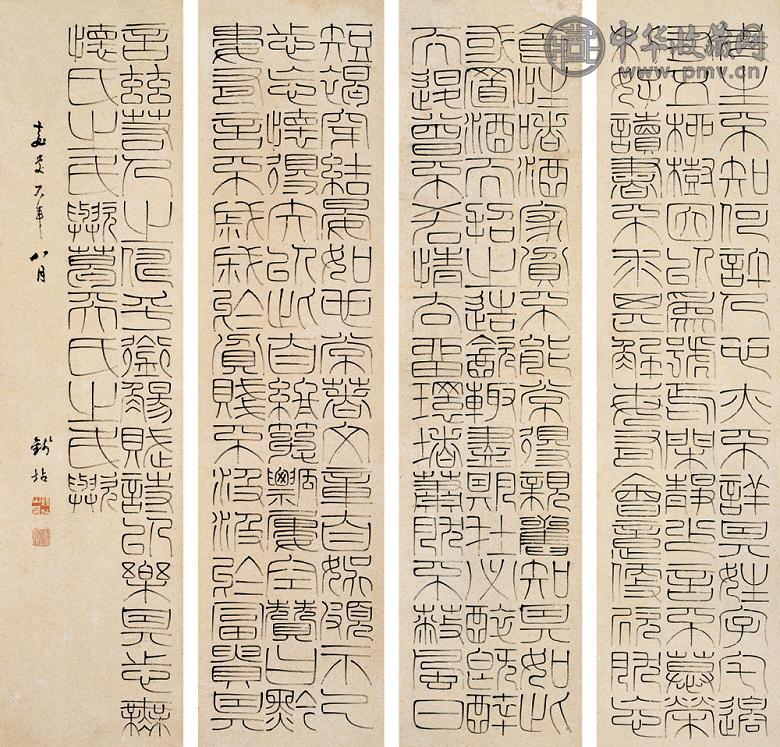 中华收藏网
www.pmv.cn
先生不知何許人也亦不詳其姓字宅邊
有五柳樹因以為號焉閑靜少言不慕榮
利好讀書不求甚解每有會意便欣然忘
食性嗜酒家貧不能常得親舊知其如此
或置酒而招之造飲輒盡期在必醉既醉
而退曾不吝情去留環堵蕭然不蔽風日
短褐穿結晏如也常著文章自娛頗示己
志忘懷得失以此自終簞瓢屢空贊曰黔
婁有言不戚戚於貧賤不汲汲於富貴其
言茲若人之儔乎銜觴賦詩以樂其志無
懷氏之民歟葛天氏之民歟
嘉慶六年八月
錢坫